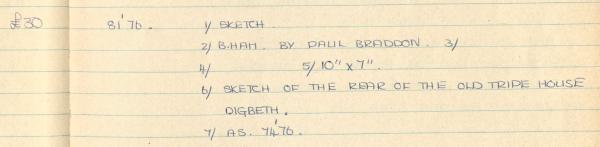 £30 81'76. 1/ SKETCH
2/ B.HAM. BY PAUL BRADDON. 3/
4/ 5/ 10" x 7".
6/ SKETCH OF THE REAR OF THE OLD TRIPE HOUSE
DIGBETH.
7/ AS. 74'76.